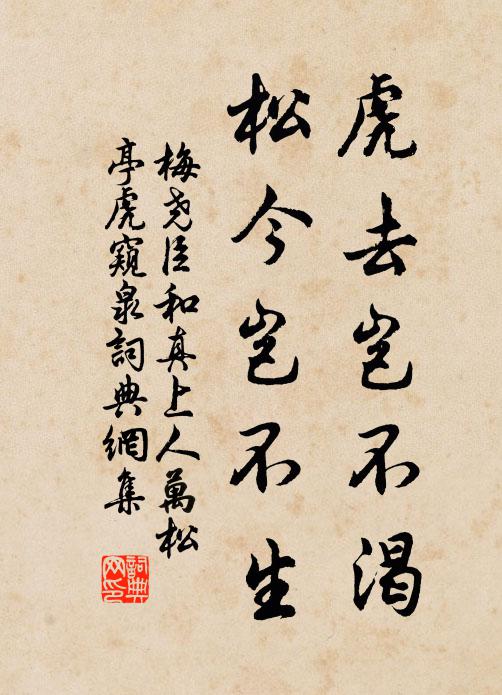 虎去岂不渴
松今岂不生
梅尧臣和真上人萬松
亭虎窺泉詞典網集
詞典网印